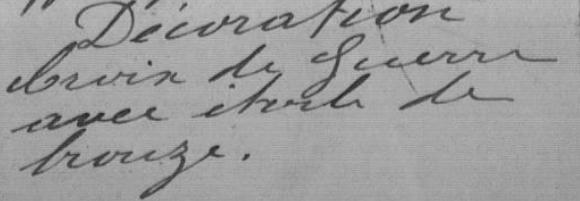 Décoration
Croix de Guerre
avec étoile de
bronze.